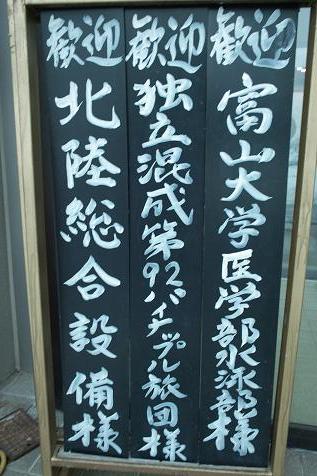 歓迎 富山大学医学部水泳部様
歓迎 独立混成第92パイナップル旅団様
歓迎 北陸総合設備様